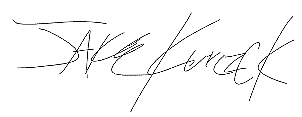 Jake Kurczek